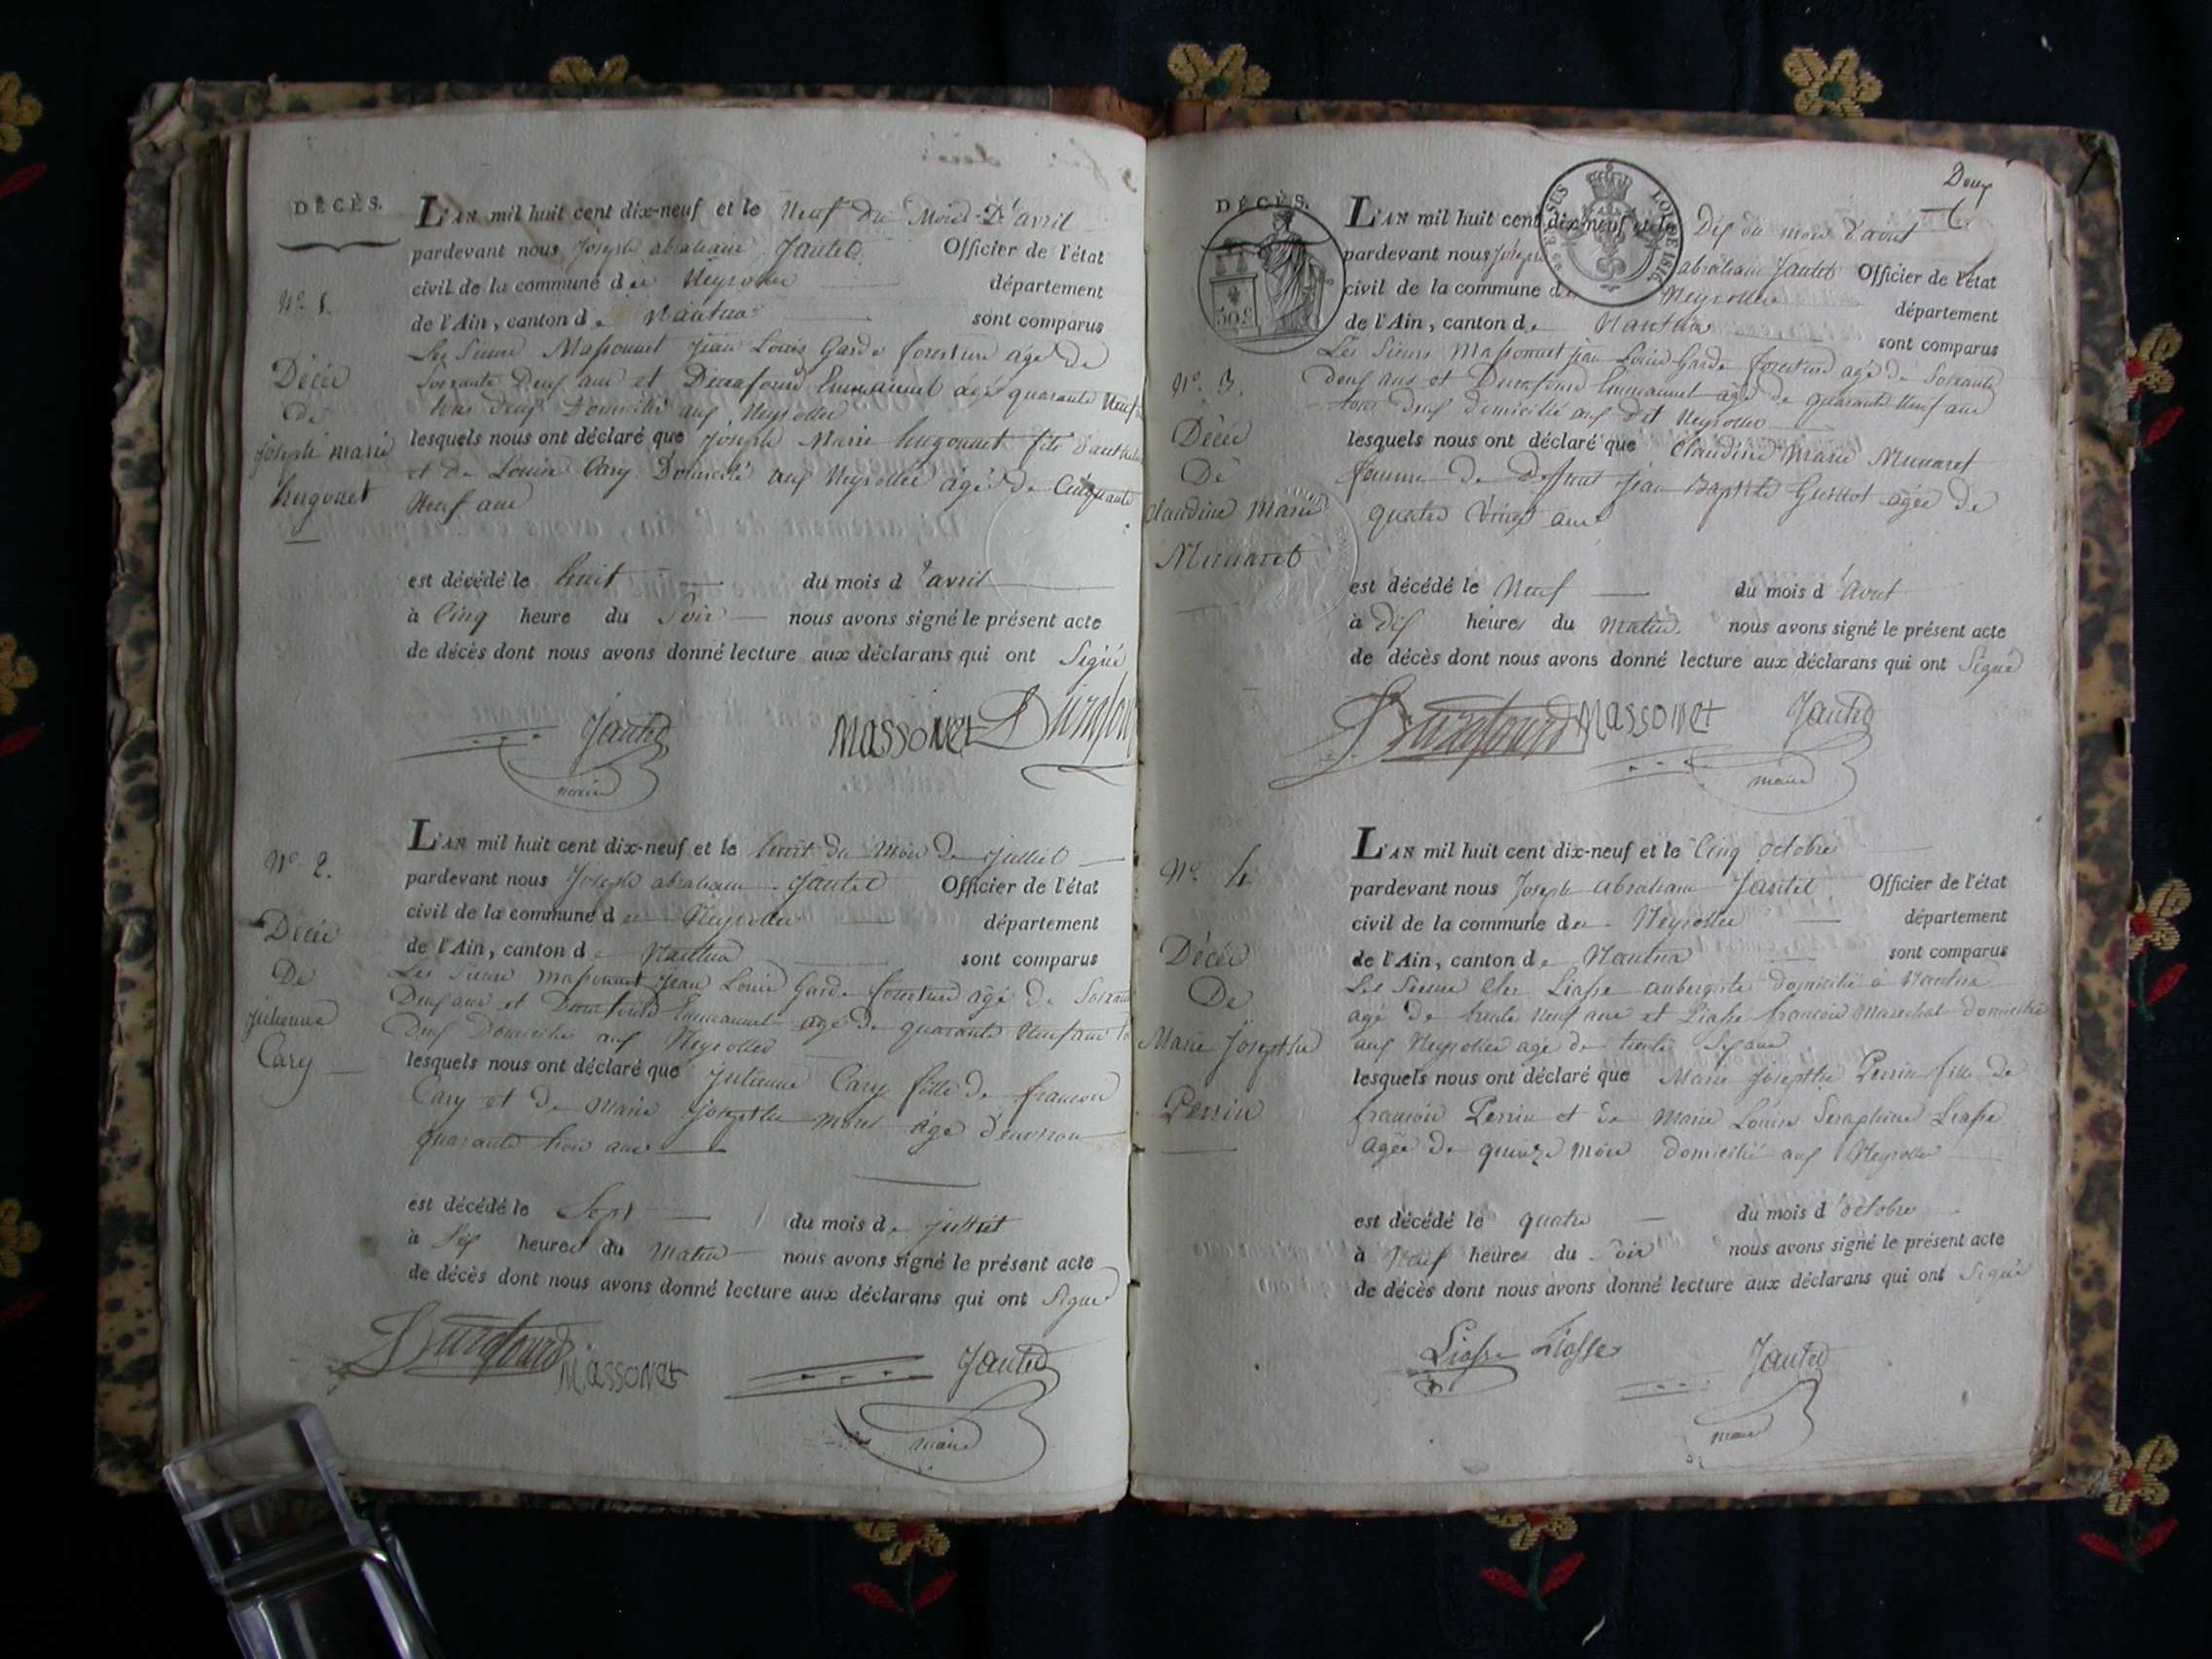 DÉCÈS.
L'AN mil huit cent dix-neuf et le Neuf du Mois D'avril
pardevant nous Joseph abraham Jantet Officier de l'état
civil de la commune des Neyrolles département
N.º 1.
de l'Ain, canton de Nantua sont comparus
Les Sieurs Massonnet jean Louis Garde forestier agé de
Décès
Soixante Deux ans et Durafourd Emmanuel agé quarante Neuf
de
tous deux Domicilié aux Neyrolles
joseph marie
lesquels nous ont déclaré que joseph Marie hugonnet fils
et de Louise Cary Domicilié aux Neyrolles âgé de Cinquante
hugonet
Neuf ans
est décédé le huit du mois d'avril
à Cinq heure du Soir nous avons signé le présent acte
de décès dont nous avons donné lecture aux déclarans qui ont Signé
Jantet MASSONET Durafour
maire
L'AN mil huit cent dix-neuf et le huit du Mois de juillet
N.º 2.
pardevant nous Joseph abraham Jantet Officier de l'état
civil de la commune des Neyrolles département
Décès
de l'Ain, canton de Nantua sont comparus
De
Les Sieurs massonnet jean Louis Garde forestier agé de Soixante
Deux ans et Durafourd Emmanuel agé de quarante Neuf ans
julienne
Deux Domicilié aux Neyrolles
Cary
lesquels nous ont déclaré que julienne Cary fille de francois
Cary et De marie josephte morel agé d'environ
quarante trois ans
est décédé le Sept du mois de juillet
à Six heures du Matin nous avons signé le présent acte
de décès dont nous avons donné lecture aux déclarans qui ont Signé
Durafourd MASSONET Jantet
maire
Deux
DÉCÈS.
L'AN mil huit cent dix-neuf et le Dix du mois d'aout
LOI DE 1816
pardevant nous joseph abraham Jantet Officier de l'état
civil de la commune des Neyrolles département
50 c
de l'Ain, canton de Nantua sont comparus
Les Sieurs Massonnet jean Louis Garde forestier agé de Soixante
N.º 3.
deux ans et Durafourd Emmanuel agé de quarante Neuf ans
tous deux domicilié aux dit Neyrolles
Décès
lesquels nous ont déclaré que Claudine Marie Munaret
De
femme de Défunt jean Baptiste Guillot agée de
Claudine Marie
quatre Vingt ans
Munaret
est décédé le Neuf du mois d'Aout
à dix heures du Matin nous avons signé le présent acte
de décès dont nous avons donné lecture aux déclarans qui ont Signé
Durafourd MASSONET Jantet
maire
L'AN mil huit cent dix-neuf et le Cinq octobre
N.º 4
pardevant nous Joseph abraham Jantet Officier de l'état
civil de la commune des Neyrolles département
Décès
de l'Ain, canton de Nantua sont comparus
Les Sieurs Liasse aubergiste domicilié à Nantua
De
agé de trente Neuf ans et Liasse francois Marechal domicilié
Marie Josephte
aux Neyrolles agé de trente Six ans
lesquels nous ont déclaré que Marie Josephte Perrin fille de
Perrin
francois Perrin et de Marie Louise Seraphine Liasse
agée de quinze mois domicilié aux Neyrolles
est décédé le quatre du mois d'octobre
à Neuf heures du Soir nous avons signé le présent acte
de décès dont nous avons donné lecture aux déclarans qui ont Signé
Liasse Liasse Jantet
maire